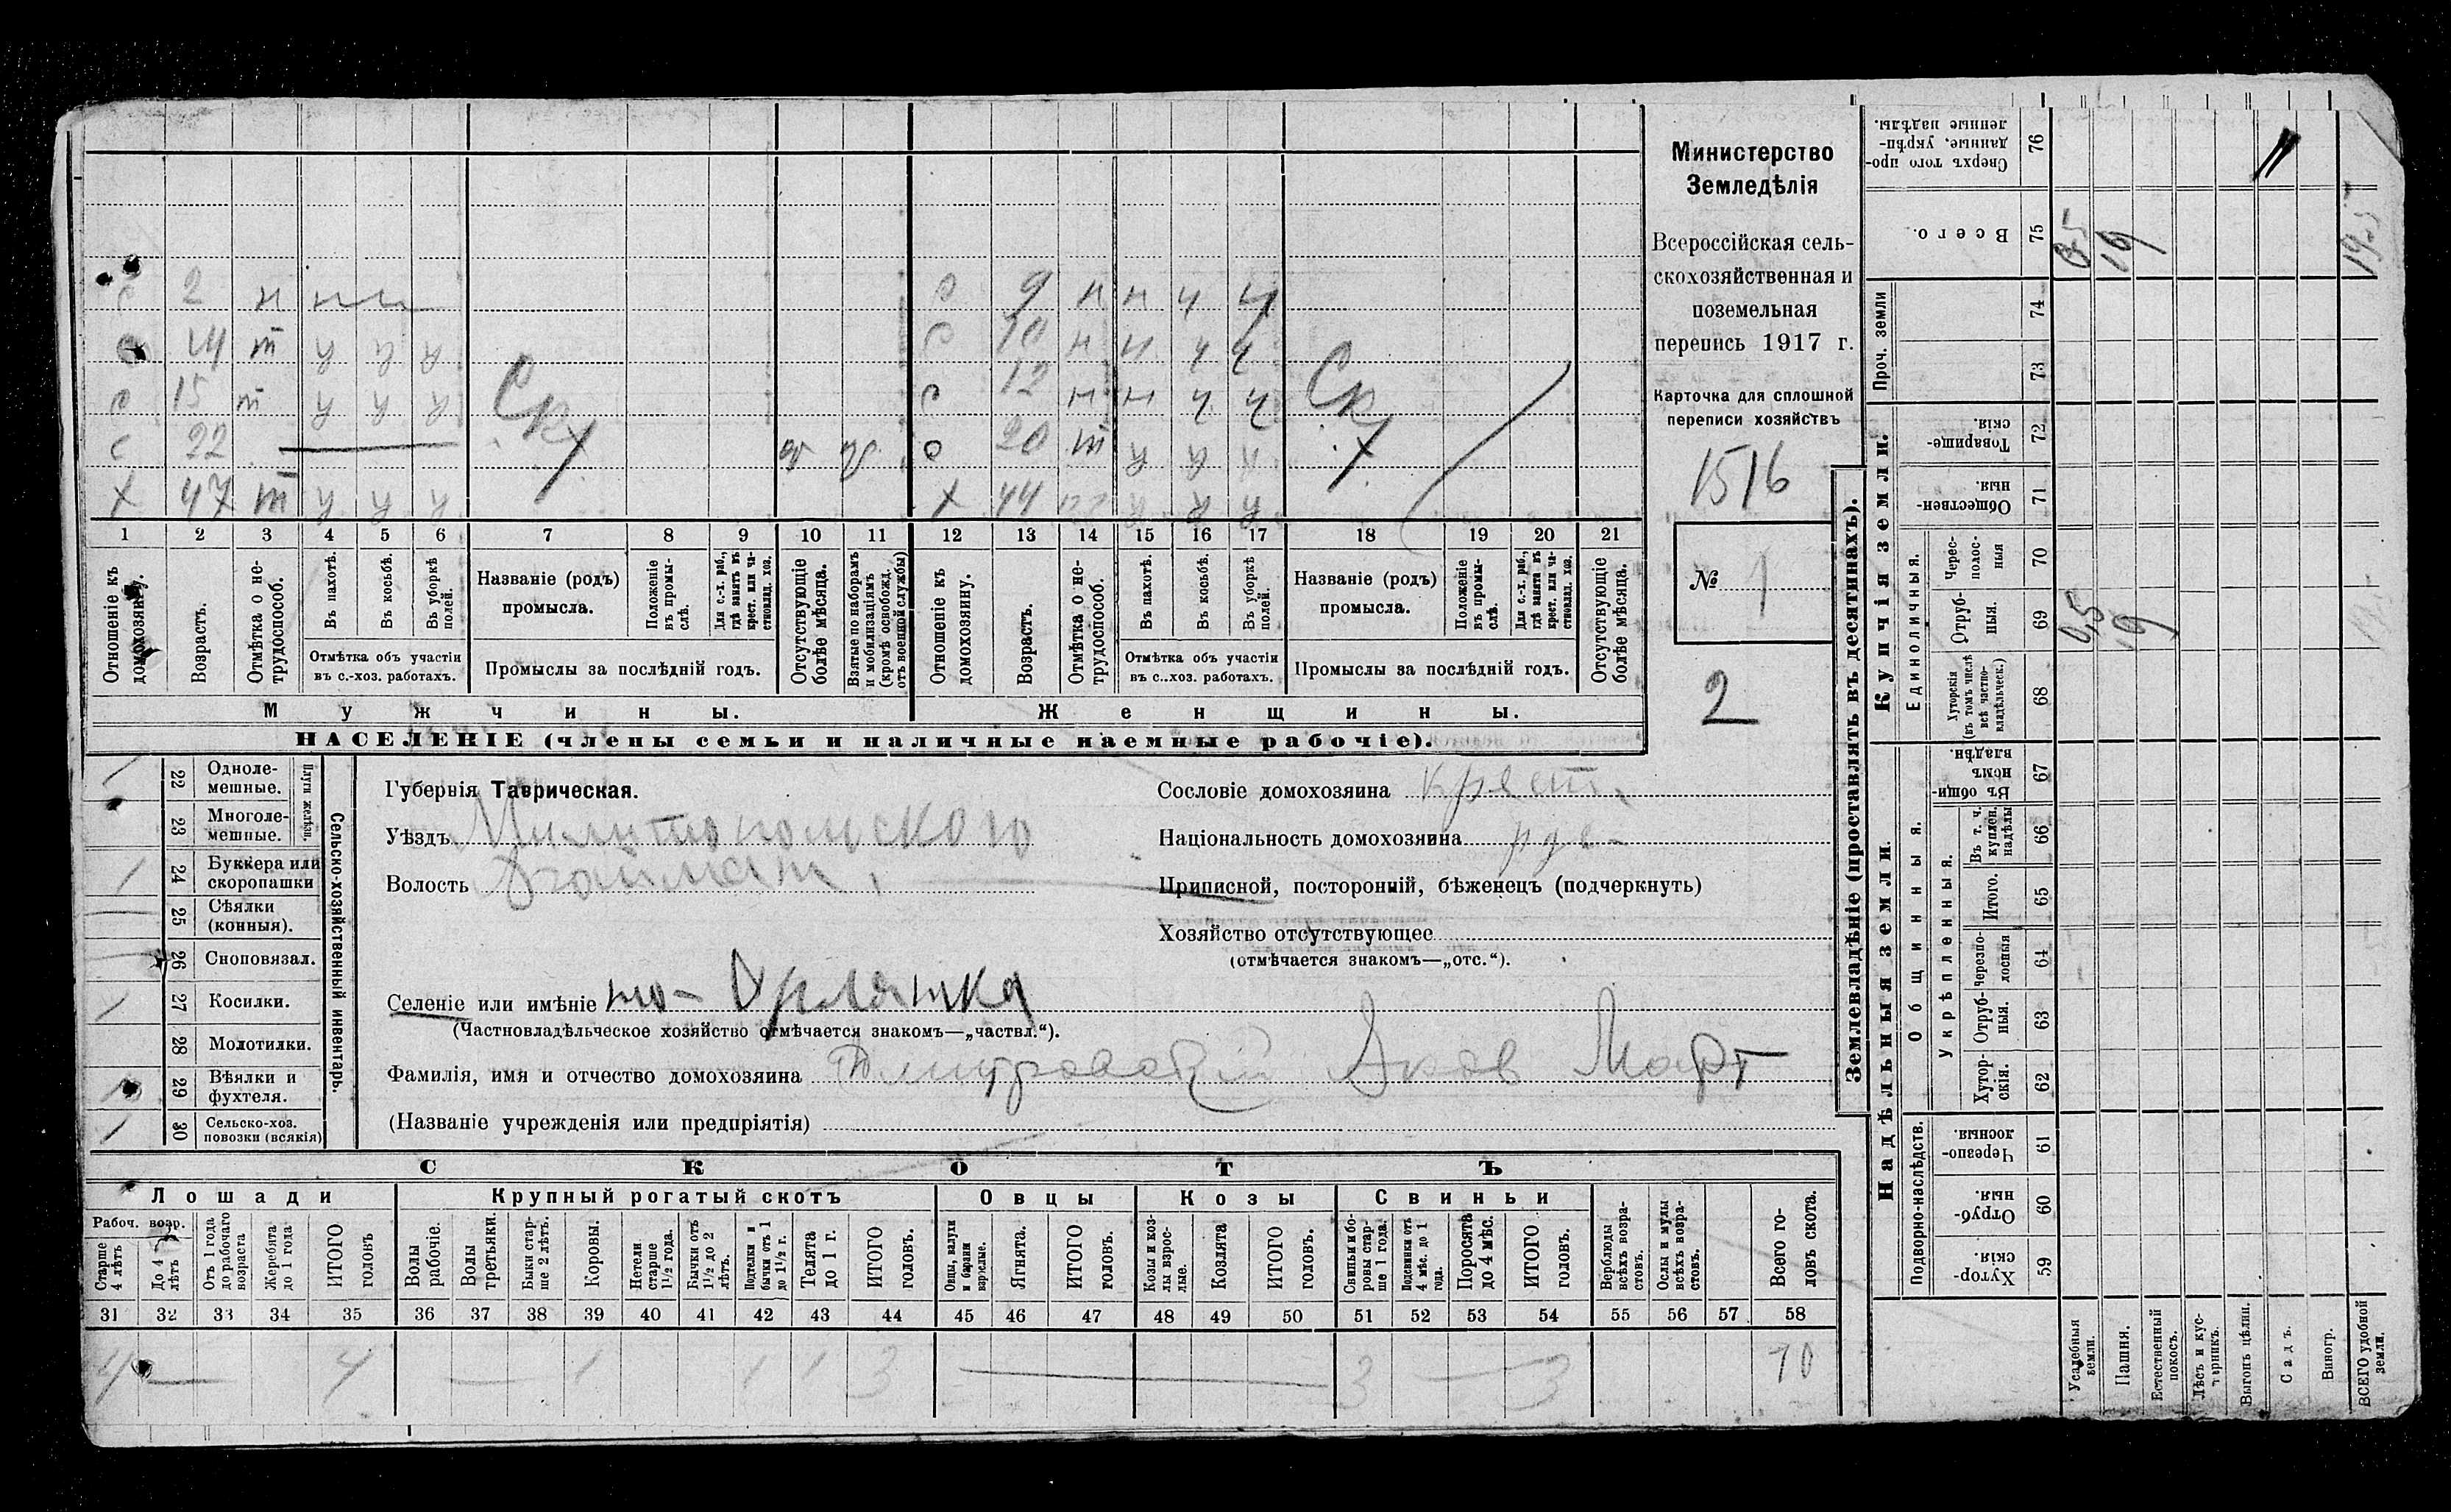 Министерство
Земледѣлія
Всероссійская сель-
скохозяйственная и
поземельная
перепись 1917 г.
Карточка для сплошной
переписи хозяйствъ
1516
№ 1
2
с 2 н н н
с 14 т у у у
с 15 т у у у
с 22
х 47 т у у у
с 9 н н ч ч
с 10 н н ч ч
с 12 н н ч ч
о 20 т у у у
х 44 у у у
Ск х
Ск х
1 2 3 4 5 6 7 8 9 10 11 12 13 14 15 16 17 18 19 20 21
Отношеніе къ домохозяину.
Возрастъ.
Отмѣтка о не-трудоспособ.
Въ пахотѣ.
Въ косьбѣ.
Въ уборкѣ полей.
Отмѣтка объ участіи
въ с.-хоз. работахъ.
Названіе (родъ)
промысла.
Положеніе въ промы-слѣ.
Для с.-х. раб., гдѣ занятъ въ крест. или ча-стновлад. хоз.
Промыслы за послѣдній годъ.
Отсутствующіе болѣе мѣсяца.
Взятые по наборамъ и мобилизаціямъ (кромѣ освобожд. отъ военной службы)
Отношеніе къ домохозяину.
Возрастъ.
Отмѣтка о не-трудоспособ.
Въ пахотѣ.
Въ косьбѣ.
Въ уборкѣ полей.
Отмѣтка объ участіи
въ с..хоз. работахъ.
Названіе (родъ)
промысла.
Положеніе въ промы-слѣ.
Для с.-х. раб., гдѣ занята въ крест. или ча-стновлад. хоз.
Промыслы за послѣдній годъ.
Отсутствующіе болѣе мѣсяца.
Мужчины.
Женщины.
НАСЕЛЕНІЕ (члены семьи и наличные наемные рабочіе).
22 Одноле-мешные.
23 Многоле-мешные.
Плуги желѣзн.
24 Буккера или скоропашки 1
25 Сѣялки (конныя).
26 Сноповязал.
27 Косилки. 1
28 Молотилки.
29 Вѣялки и фухтеля.
30 Сельско-хоз. повозки (всякія) 1
Сельско-хозяйственный инвентарь.
Губернія Таврическая.
Уѣздъ Милитопольского
Волость
Селеніе или имѣніе Орлянка
(Частновладѣльческое хозяйство отмѣчается знакомъ—„частвл.“).
Фамилія, имя и отчество домохозяина Дмитровскій Яков Март
(Названіе учрежденія или предпріятія)
Сословіе домохозяина крест.
Національность домохозяина
Приписной, посторонній, бѣженецъ (подчеркнуть)
Хозяйство отсутствующее
(отмѣчается знакомъ—„отс.“).
СКОТЪ
Лошади
Крупный рогатый скотъ
Овцы
Козы
Свиньи
Рабоч. возр.
Старше 4 лѣтъ
До 4 лѣтъ
Отъ 1 года до рабочаго возраста
Жеребята до 1 года
ИТОГО головъ
Волы рабочіе.
Волы третьяки.
Быки стар-ше 2 лѣтъ.
Коровы.
Нетели старше 1½ года.
Бычки отъ 1½ до 2 лѣтъ.
Подтелки и бычки отъ 1 до 1½ г.
Телята до 1 г.
ИТОГО головъ.
Овцы, валухи и бараны взрослые.
Ягнята.
ИТОГО головъ.
Козы и коз-лы взрос-лые.
Козлята
ИТОГО головъ.
Свиньи и бо-ровы стар-ше 1 года.
Подсвинки отъ 4 мѣс. до 1 года.
Поросята до 4 мѣс.
ИТОГО головъ.
Верблюды всѣхъ возра-стовъ.
Ослы и мулы всѣхъ возра-стовъ.
Всего го-ловъ скота.
31 32 33 34 35 36 37 38 39 40 41 42 43 44 45 46 47 48 49 50 51 52 53 54 55 56 57 58
4 — 4 — 1 1 1 3 — 3 — 3 10
Землевладѣніе (проставлять въ десятинахъ).
Надѣльныя земли.
Купчія земли.
Проч. земли
Подворно-наслѣдств.
Общинныя.
Укрѣпленныя.
Единоличныя.
Сверхъ того про-данные, укрѣп-ленные надѣлы. 76
Всего. 75 0,5 19 19,5
74
73
Товарище-скія. 72
Обществен-ныя. 71
Черес-полос-ныя 70
Отруб-ныя. 69 0,5 19
Хуторскія (въ томъ числѣ всѣ частно-владѣльческ.) 68
Въ общи-номъ владѣн. 67
Въ т. ч. куплен. надѣлы 66
Итого. 65
Черезпо-лосныя 64
Отруб-ныя. 63
Хутор-скія. 62
Черезпо-лосныя. 61
Отруб-ныя. 60
Хутор-скія. 59
Усадебныя земли.
Пашня.
Естественный покосъ.
Лѣсъ и кус-тарникъ.
Выгонъ цѣлин.
Садъ.
Виногр.
ВСЕГО удобной земли.